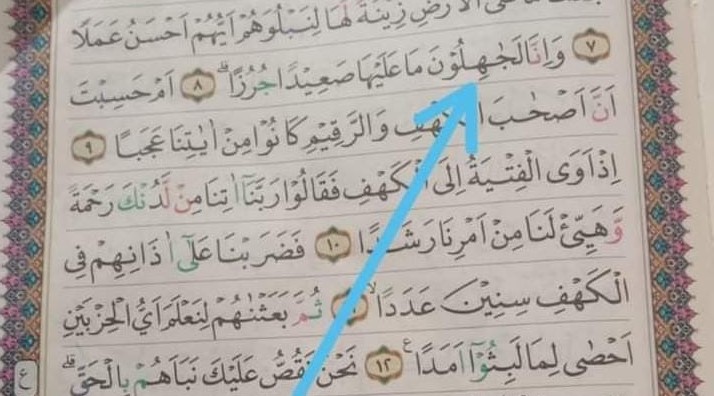 الْاَرْضِ زِيْنَةً لَّهَا لِنَبْلُوَهُمْ اَيُّهُمْ اَحْسَنُ عَمَلًا
٧ وَاِنَّا لَجٰهِلُوْنَ مَا عَلَيْهَا صَعِيْدًا جُرُزًاۗ ٨ اَمْ حَسِبْتَ
اَنَّ اَصْحٰبَ الْكَهْفِ وَالرَّقِيْمِ كَانُوْا مِنْ اٰيٰتِنَا عَجَبًا ٩
اِذْ اَوَى الْفِتْيَةُ اِلَى الْكَهْفِ فَقَالُوْا رَبَّنَآ اٰتِنَا مِنْ لَّدُنْكَ رَحْمَةً
وَّهَيِّئْ لَنَا مِنْ اَمْرِنَا رَشَدًا ١٠ فَضَرَبْنَا عَلٰٓى اٰذَانِهِمْ فِى
الْكَهْفِ سِنِيْنَ عَدَدًاۙ ثُمَّ بَعَثْنٰهُمْ لِنَعْلَمَ اَيُّ الْحِزْبَيْنِ
اَحْصٰى لِمَا لَبِثُوْٓا اَمَدًاࣖ ١٢ نَحْنُ نَقُصُّ عَلَيْكَ نَبَاَهُمْ بِالْحَقِّۗ
ع